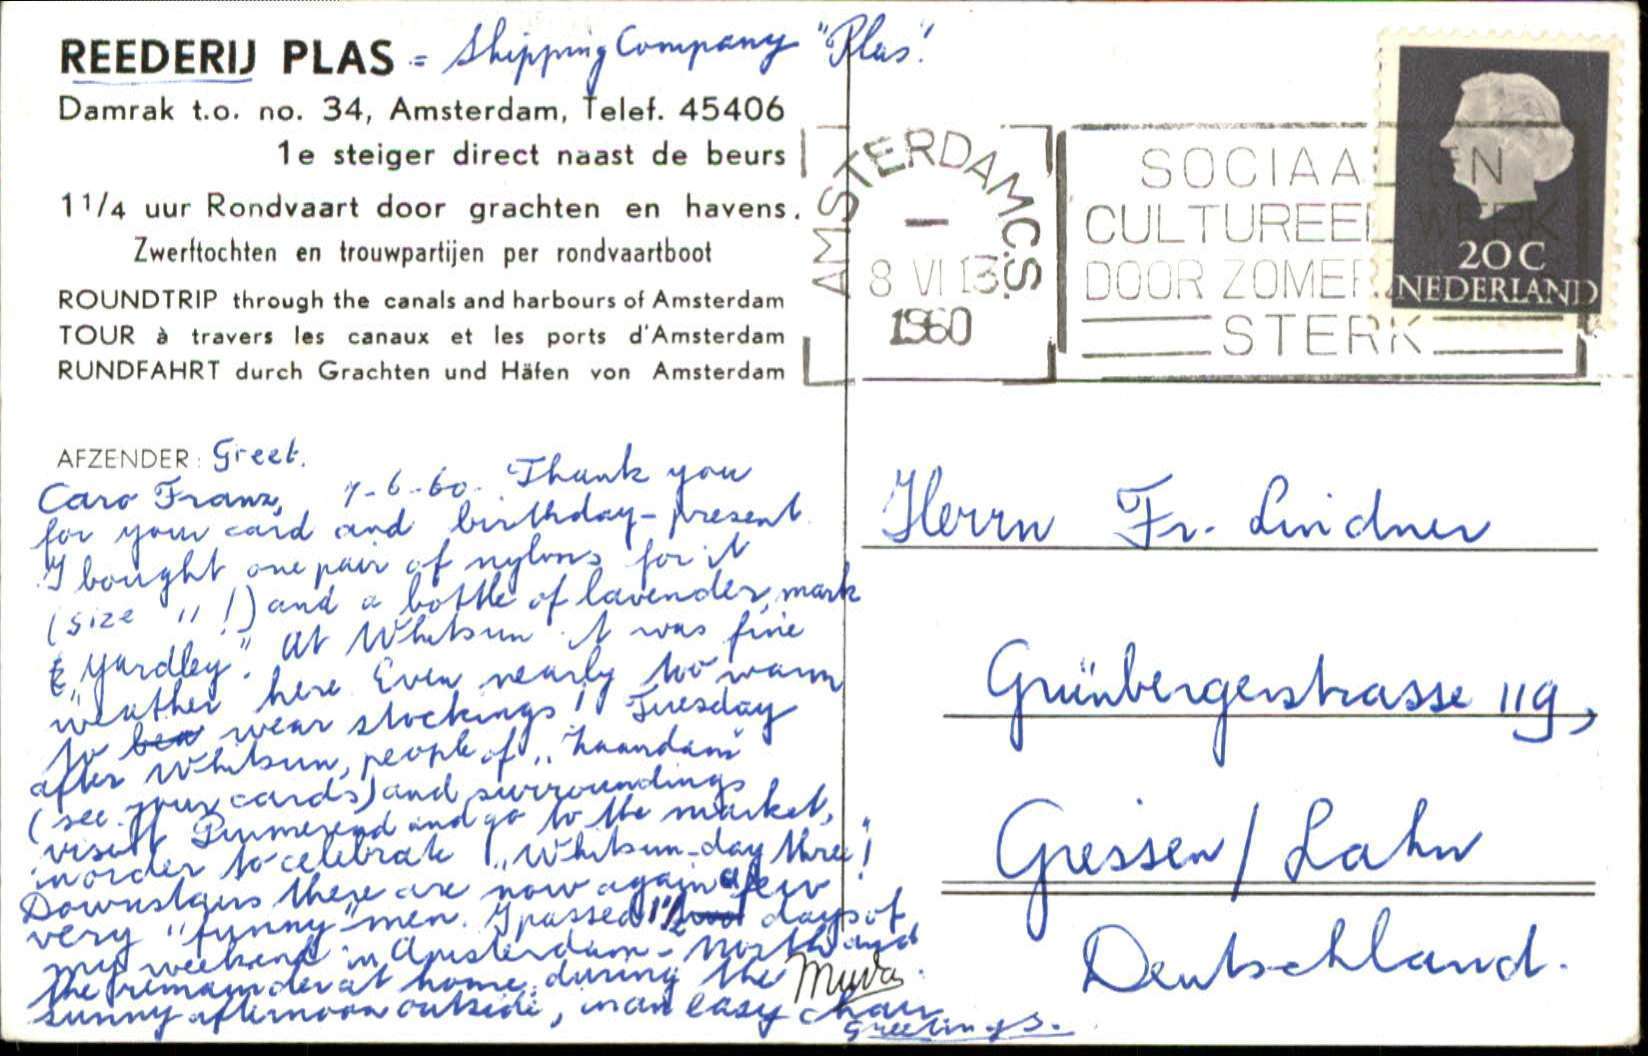 REEDERIJ PLAS = Shipping Company "Plas".
Damrak t.o. no. 34, Amsterdam, Telef. 45406
1e steiger direct naast de beurs
1 1/4 uur Rondvaart door grachten en havens.
Zwerftochten en trouwpartijen per rondvaartboot
ROUNDTRIP through the canals and harbours of Amsterdam
TOUR à travers les canaux et les ports d'Amsterdam
RUNDFAHRT durch Grachten und Häfen von Amsterdam
AFZENDER: Greet.
Caro Franz, 7-6-60. Thank you
for your card and birthday-present
I bought one pair of nylons for it
(size 11!) and a bottle of lavender, mark
"Yardley". At Whitsun it was fine
weather here. Even nearly too warm
to wear stockings! Tuesday
after Whitsun, people of "Zaandam"
(see your cards) and surroundings
visit Purmerend and go to the market,
in order to celebrate "Whitsun-day three!
Downstairs there are now again a few
very "funny" men. I passed 1½ days of
my weekend in Amsterdam-North and
the remainder at home, during the
sunny afternoon outside, in an easy chair
Greetings.
Muva
AMSTERDAM C.S.
8 VI 13
1960
SOCIAA EN
CULTUREEL WERK
DOOR ZOMER
STERK
20C
NEDERLAND
Herrn Fr. Lindner
Grünbergerstrasse 119,
Giessen/Lahn
Deutschland.